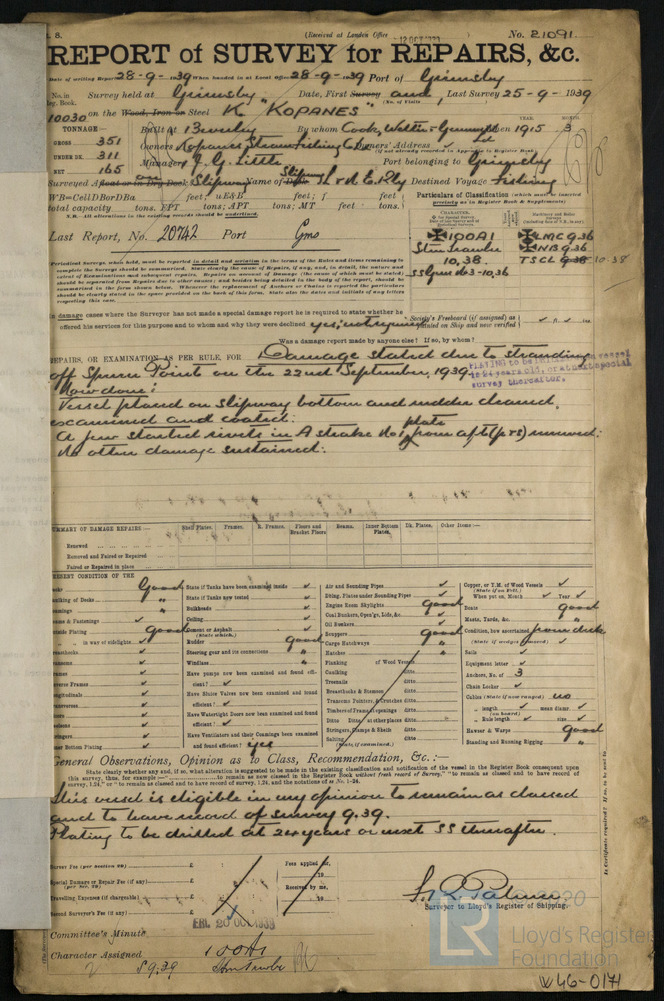 (Received at London Office 12 OCT 1939) No. 21091.
REPORT of SURVEY for REPAIRS, &c.
Date of writing Report 28-9-1939 When handed in at Local Office 28-9-1939 Port of Grimsby
No. in Reg. Book. Survey held at Grimsby Date, First Survey and Last Survey 25-9-1939
(No. of Visits
10030 on the Wood, Iron or Steel K. "KOPANES"
TONNAGE:—
GROSS 351
UNDER DK. 311
NET 165
Built at Beverley By whom Cook, Welton & Gemmell When 1915 3
YEAR. MONTH.
Owners Kopanes Steam Fishing Co Ld Owners' Address
(if not already recorded in Appendix to Register Book)
Managers J. G. Little Port belonging to Grimsby
Surveyed Afloat or in Dry Dock on Slipway Name of Dock Slipway L & N.E. Rly Destined Voyage Fishing
WB=CellDBorDBa feet; uE&B feet; f feet
total capacity tons. FPT tons; APT tons; MT feet tons.
N.B. All alterations in the existing records should be underlined.
Last Report, No. 20742 Port Gms
Particulars of Classification (which must be inserted precisely as in Register Book & Supplements)
✠100A1 ✠LMC 9.36
Stm Trawler ✠NB 9.36
10,38. TSCL 9.38 10.38
SS Gms No 3-10,36
Periodical Surveys, when held, must be reported in detail and seriatim in the terms of the Rules and items remaining to
In damage cases where the Surveyor has not made a special damage report he is required to state whether he
offered his services for this purpose and to whom and why they were declined yes, not required
Society's Freeboard (if assigned) as painted on Ship and now verified
Was a damage report made by anyone else? If so, by whom?
REPAIRS, OR EXAMINATION AS PER RULE, FOR Damage stated due to stranding
off Spurn Point on the 22nd September, 1939.
PLATING to be DRILLED when vessel
is 24 years old, or at next special
survey thereafter.
Now done:
Vessel placed on slipway bottom and rudder cleaned,
examined and coated.
A few started rivets in A strake No 1 plate from aft (p & s) renewed:
No other damage sustained:
SUMMARY OF DAMAGE REPAIRS:— Shell Plates. Frames. R. Frames. Floors and Bracket Floors Beams. Inner Bottom Plates. Dk. Plates. Other Items:—
Renewed
Removed and Faired or Repaired
Faired or Repaired in place
PRESENT CONDITION OF THE
Decks Good
Caulking of Decks "
Coamings "
Beams & Fastenings ✓
Outside Plating Good
" " in way of sidelights ✓
Breasthooks ✓
Transoms ✓
Frames ✓
Reverse Frames ✓
Longitudinals ✓
Transverses ✓
Floors ✓
Keelsons ✓
Stringers ✓
Inner Bottom Plating ✓
State if Tanks have been examined inside ✓
State if Tanks now tested ✓
Bulkheads ✓
Ceiling ✓
Cement or Asphalt ✓
(State which.)
Rudder good
Steering gear and its connections "
Windlass "
Have pumps now been examined and found efficient? ✓
Have Sluice Valves now been examined and found efficient? ✓
Have Watertight Doors now been examined and found efficient? ✓
Have Ventilators and their Coamings been examined and found efficient? yes
Air and Sounding Pipes ✓
Dblng. Plates under Sounding Pipes ✓
Engine Room Skylights Good
Coal Bunkers, Open'gs, Lids, &c. ✓
Oil Bunkers ✓
Scuppers Good
Cargo Hatchways "
Hatches "
Planking of Wood Vessels
Caulking ditto
Treenails ditto
Breasthooks & Stemson ditto
Transoms Pointers, & Crutches ditto
Timbers of Frame at openings ditto
Ditto Ditto at other places ditto
Stringers, Clamps & Shelfs ditto
Salting ditto
(State, if examined.)
Copper, or Y.M. of Wood Vessels ✓
(State if on Felt.)
When put on, Month ✓ Year ✓
Boats Good
Masts, Yards, &c. "
Condition, how ascertained from deck
Sails ✓
Equipment letter ✓
Anchors, No. of 3
Chain Locker ✓
Cables (State if now ranged) no
" length ✓ mean diamr. ✓
(on board)
" Rule length ✓ size ✓
Hawser & Warps Good
Standing and Running Rigging "
General Observations, Opinion as to Class, Recommendation, &c.:—
State clearly whether any and, if so, what alteration is suggested to be made in the existing classification and notification of the vessel in the Register Book consequent upon
this survey, thus, for example— "to remain as now classed in the Register Book without fresh record of Survey," "to remain as classed and to have record of
survey, 1,24," or "to remain as classed and to have record of survey, 1,24, and the notations of ss No. 1-24.
This vessel is eligible in my opinion to remain as classed
and to have record of survey 9.39.
Plating to be drilled at 24 years or next SS thereafter.
Is Certificate required? If so, to be sent to
Survey Fee (per section 29) £
Special Damage or Repair Fee (if any) £
(per Sec. 29)
Travelling Expenses (if chargeable) £
Second Surveyor's Fee (if any) £
Fees applied for, 19
Received by me, 19
Surveyor to Lloyd's Register of Shipping.
Committee's Minute FRI. 20 OCT 1939
Character Assigned 100A1
S 9.39 Stm Trawler
© 2020
LR
Lloyd's Register
Foundation
W46-0171